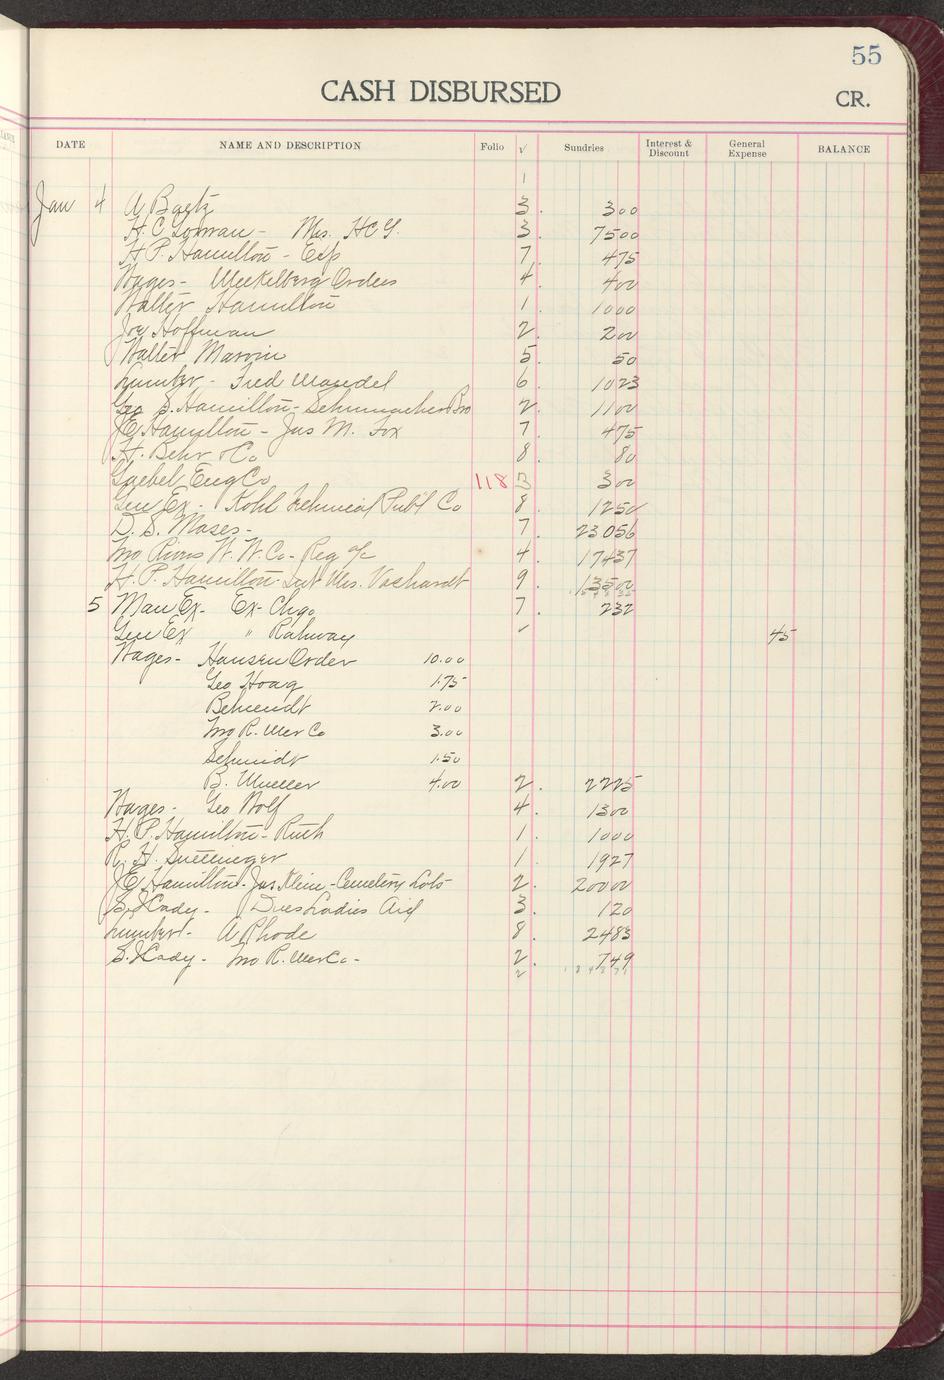 55
CASH DISBURSED
CR.
DATE NAME AND DESCRIPTION Folio √ Sundries Interest & Discount General Expense BALANCE
1
Jan 4 A Baetz 3. 300
H.C. Gowran - Mrs. HCG. 3. 7500
H P. Hamilton - Exp 7. 475
Wages - Meekelberg Orders 4. 400
Walter Hamilton 1. 1000
Joe Hoffman 2. 200
Walter Marvin 5. 50
Lumber - Fred Mandel 6. 1023
Geo S. Hamilton - Schumacher Bro 2. 1100
J E Hamilton - Jas M. Fox 7. 475
H. Behr & Co 8. 80
Goebel Eug Co 118 3 300
Gen Ex - Kohl Technical Publ Co 8. 1250
D. S. Moses - 7. 23056
Two Rivers W. W. Co - Reg a/c 4. 17437
H. P. Hamilton - Int Mrs. 9. 13500
5 Man Ex. Ex - Chgo 7. 232
Gen Ex " Rahway √ 45
Wages - Hansen Order 10.00
Geo Hoag 1.75
Behrendt 2.00
Two R. Mer Co 3.00
Schmidt 1.50
B. Mueller 4.00 2. 2225
Wages - Geo Wolf 4. 1300
H. P. Hamilton - Ruth 1. 1000
R. H. Suettinger 1. 1927
J E Hamilton - Jas Klein - Cemetery Lots 2. 20000
S. J Cady - Dues Ladies Aid 3. 120
Lumber - A Rhode 8. 2483
S. J Cady - Two R. Mer Co - 2. 749
2